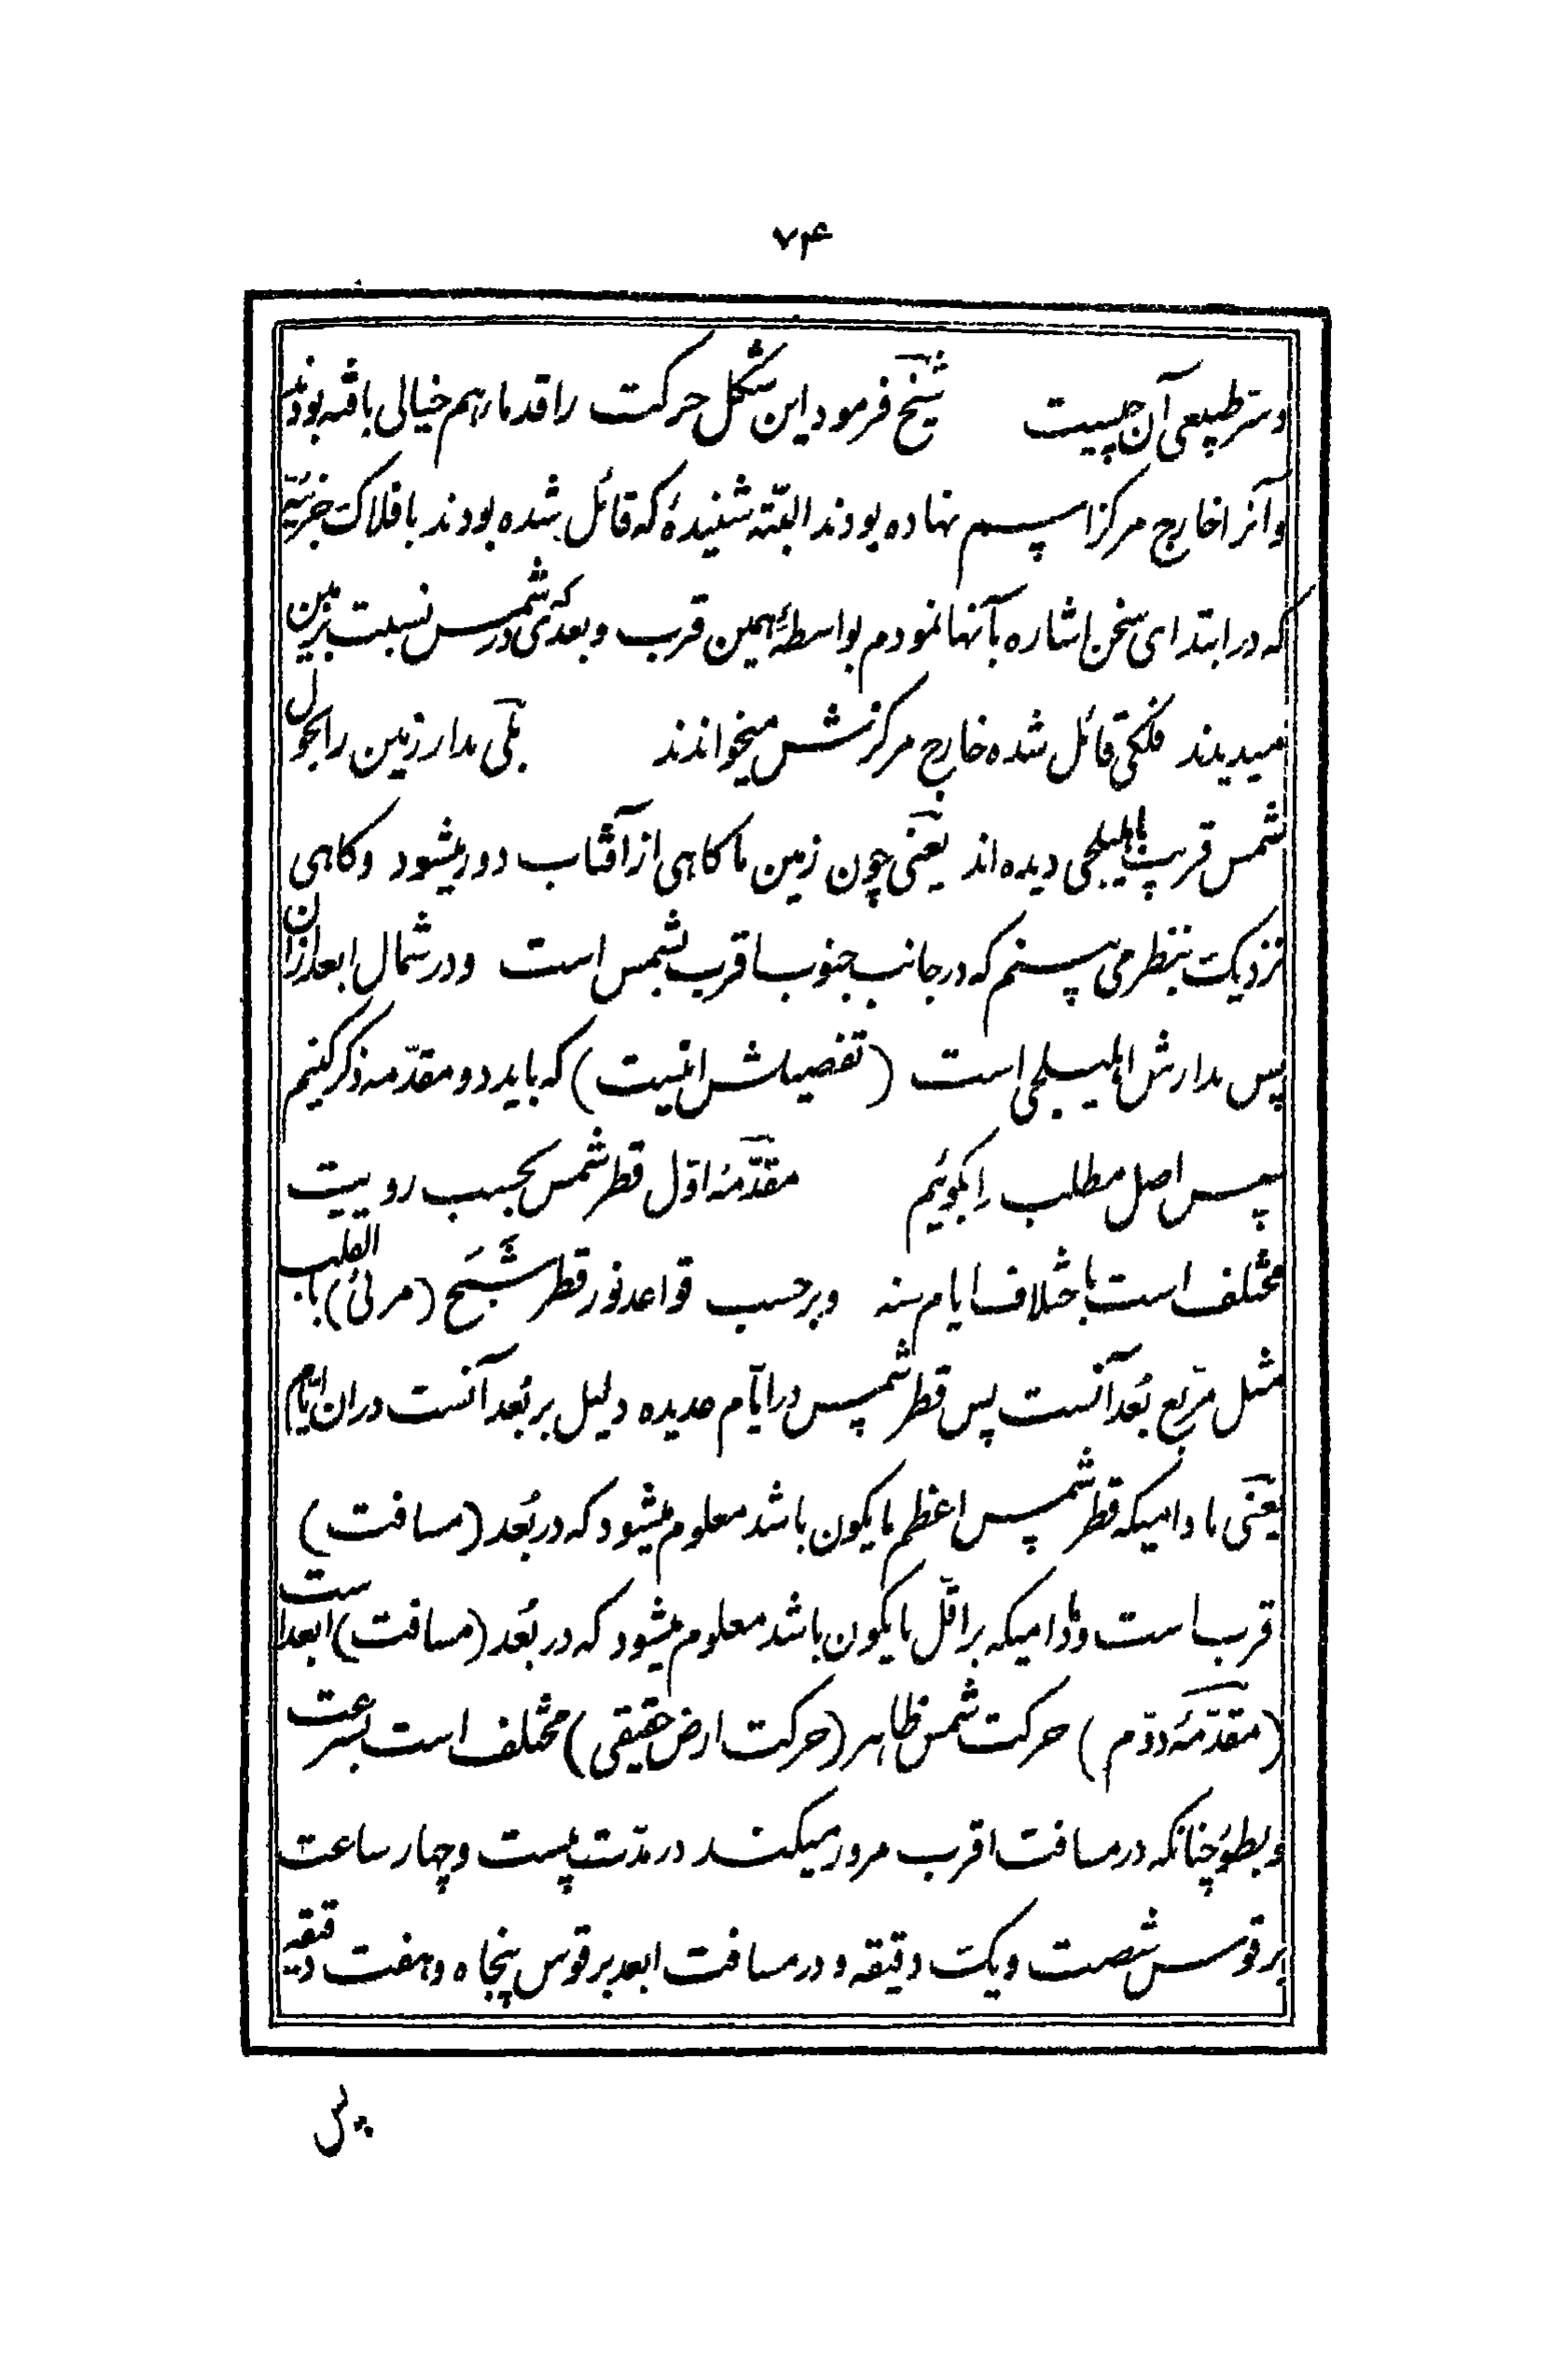 ۷۴
وسر طبیعی آن چیست شیخ فرمود این شکل حرکت را قدما رهم خیالی بافته بودند
و آنرا خارج مرکز اسم نهاده بودند البتّه شنیدهٔ که قائل شده بودند بافلاک جزئیّه
که در ابتدای سخن اشاره بآنها نمودم بواسطهٔ همین قرب و بعدی که در شمس نسبت بزمین
میدیدند فلکی قائل شده خارج مرکزش میخواندند بلی مدار زمین را بحول
شمس قریب باهلیلجی دیده‌اند یعنی چون زمین ما کاهی از آفتاب دور میشود و کاهی
نزدیک بنظر می پسنم که در جانب جنوب اقرب بشمس است و در شمال ابعد از آن
پس مدارش اهلیلجی است (تفصیلش اینست) که باید دو مقدّمه ذکر کنیم
سپس اصل مطلب را بکوئیم مقدّمهٔ اوّل قطر شمس بحسب رویت
مختلف است باختلاف ایام سنه و برحسب قواعد نور قطر شَبَح (مرئی) بالقلب
مثل مربّع بُعد آنست پس قطر شمس در ایّام عدیده دلیل بر بُعد آنست در ان ایّام
یعنی مادامیکه قطر شمس اعظم مایکون باشد معلوم میشود که در بُعد (مسافت)
قرب است و مادامیکه بر اقلّ مایکون باشد معلوم میشود که در بُعد (مسافت) ابعد است
(مقدّمهٔ دوّم) حرکت شمس ظاهر (حرکت ارض حقیقی) مختلف است بسرعت
و بطوٴ چنانکه در مسافت اقرب مرور میکند در مدّت بیست و چهار ساعت
بر قوس شصت و یک دقیقه و در مسافت ابعد بر قوس پنجاه و هفت دقیقه
پس